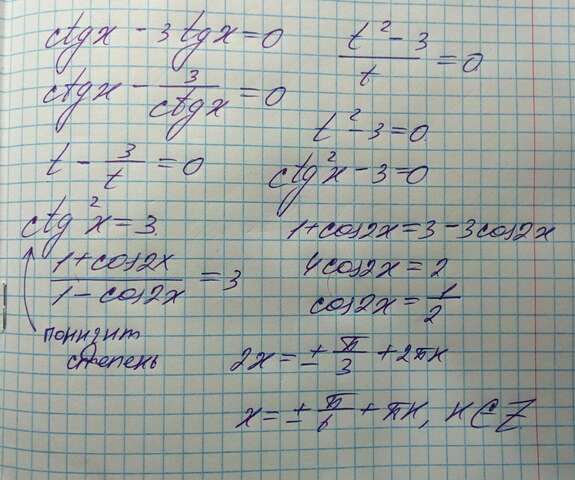 ctgx - 3tgx = 0
ctgx - 3/ctgx = 0
t - 3/t = 0
(t² - 3)/t = 0
t² - 3 = 0
ctg²x - 3 = 0
ctg²x = 3
(1 + cos2x)/(1 - cos2x) = 3
понизит
степень
1 + cos2x = 3 - 3cos2x
4cos2x = 2
cos2x = 1/2
2x = ± π/3 + 2πн
x = ± π/6 + πн, н ∈ Z